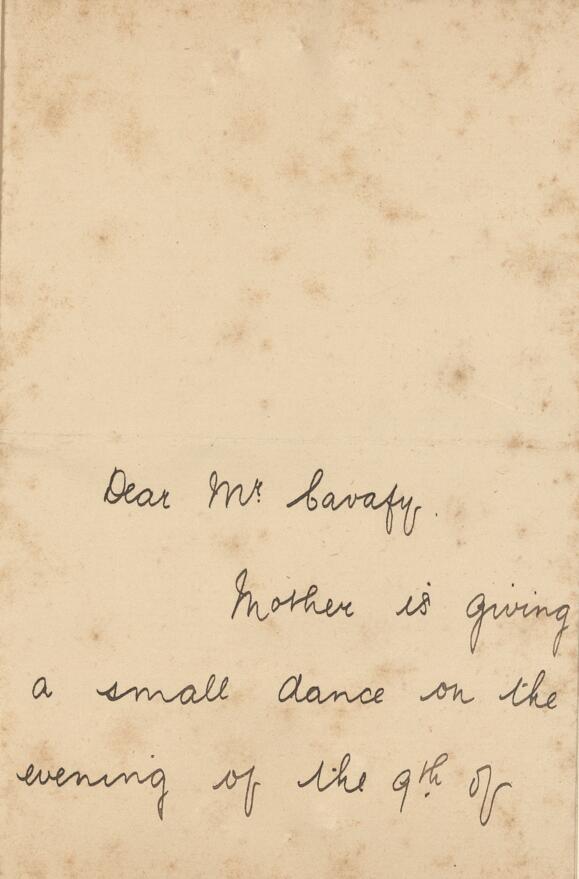 Dear Mr. Cavafy.
Mother is giving
a small dance on the
evening of the 9th of